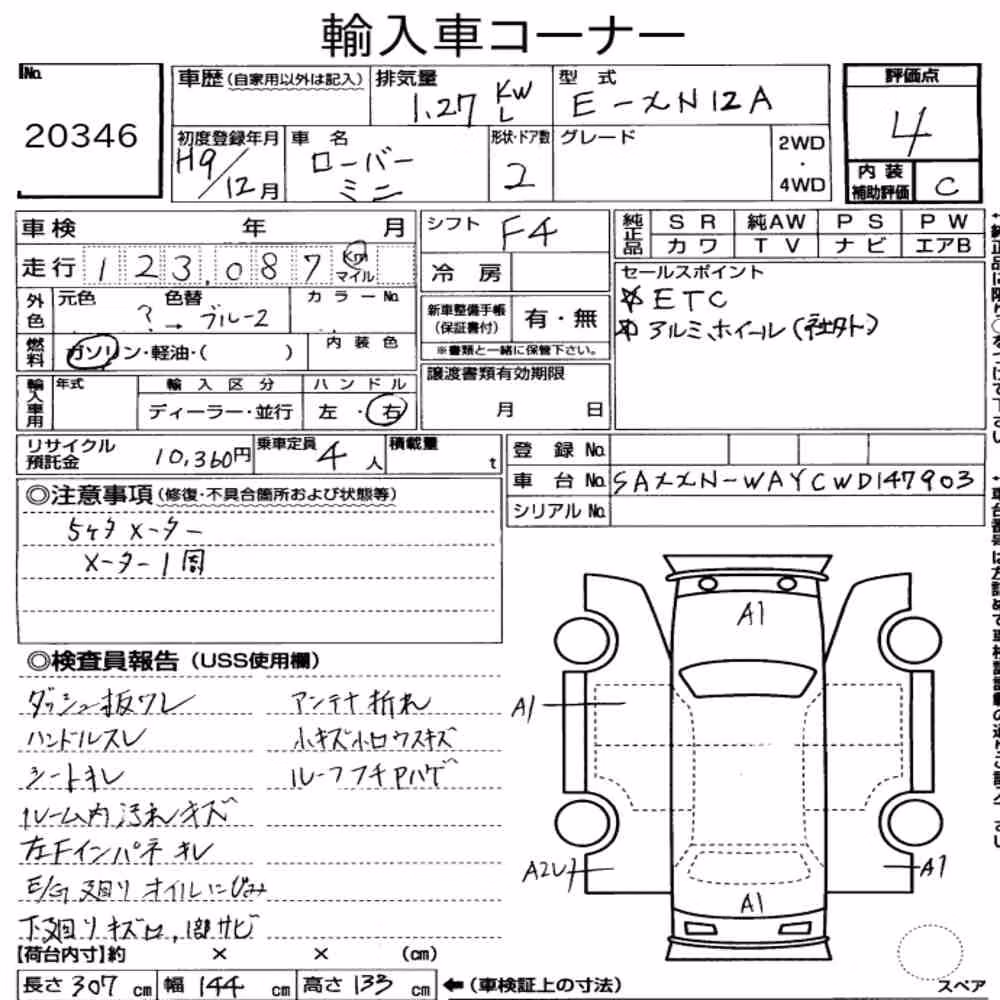 輸入車コーナー
No.
20346
車歴(自家用以外は記入)
排気量
1.27 KW L
型 式
E-XN12A
評価点
4
初度登録年月
H9/12月
車 名
ローバー
ミニ
形状・ドア数
2
グレード
2WD
・
4WD
内装
補助評価
C
車検 年 月
走行 123,087 Km マイル
外色
元色 色替
? → ブルー2
カラーNo.
燃料
ガソリン・軽油・( )
内装色
輸入車用
年式
輸入区分
ディーラー・並行
ハンドル
左・右
シフト F4
冷 房
新車整備手帳
(保証書付)
有・無
※書類と一緒に保管下さい。
譲渡書類有効期限
月 日
純正品
SR 純AW PS PW
カワ TV ナビ エアB
セールスポイント
☆ETC
☆アルミホイール(社外)
リサイクル
預託金
10,360円
乗車定員 4人
積載量 t
登 録 No.
車 台 No. SAXXN-WAYCWD147903
シリアル No.
◎注意事項(修復・不具合箇所および状態等)
5ケタメーター
メーター1周
◎検査員報告(USS使用欄)
ダッシュ板ワレ
アンテナ折れ
ハンドルスレ
小キズ小凹ウスキズ
シートキレ
ルーフフチPハゲ
ルーム内汚れキズ
左Fインパネキレ
E/G廻りオイルにじみ
下廻りキズ凹,1部サビ
A1
A1
A2U
A1
A1
スペア
【荷台内寸】約 × × (cm)
長さ 307 cm
幅 144 cm
高さ 133 cm
←(車検証上の寸法)